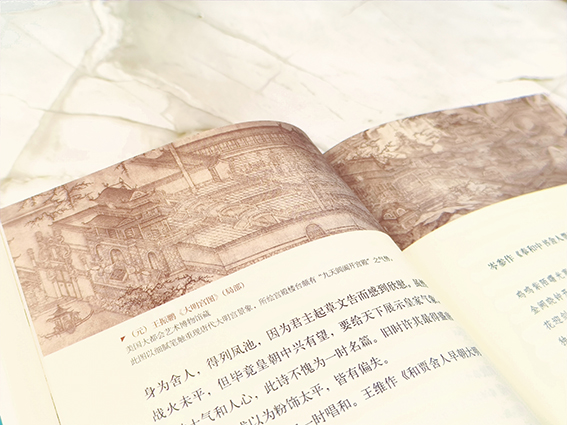 (元) 王振鹏《大明宫图》(局部)
美国大都会艺术博物馆藏
此图以细腻笔触重现唐代大明宫景象,所绘宫殿楼台颇有“九天阊阖开宫殿”之气势。
身为舍人,得列凤池,因为君主起草文告而感到欣慰,虽
战火未平,但毕竟皇朝中兴有望,要给天下展示皇家气象,
士气和人心,此诗不愧为一时名篇。旧时许其最得
或以为粉饰太平,皆有偏失。
一时唱和。王维作《和贾舍人早朝大明
岑参作《奉和中书舍人贾
鸡鸣紫陌曙光
金阙晓钟开
花迎剑